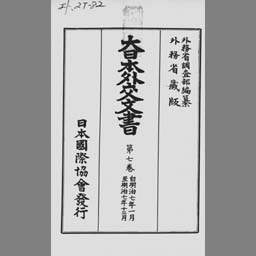 外務省調査部編纂
外務省藏版
大日本外交文書
第七卷
自明治七年一月
至明治七年十二月
日本國際協會發行